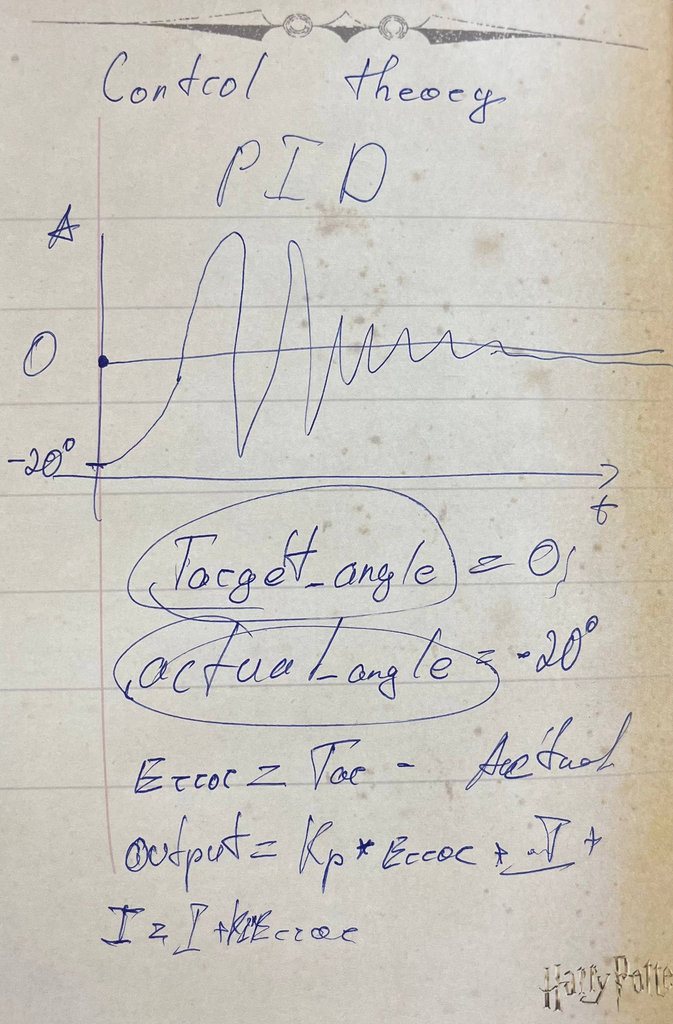 Control theory
PID
A
0
-20°
t
Target_angle = 0;
actual_angle = -20°
Error = Tar - Actual
Output = Kp * Error + I +
I = I + Ki*Error
Harry Potte